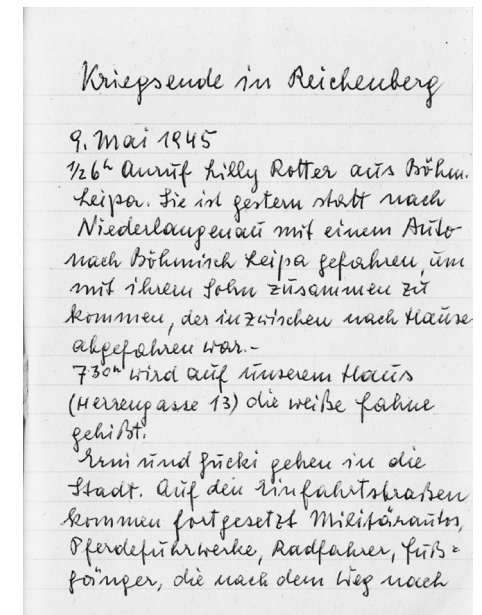 Kriegsende in Reichenberg
9. Mai 1945
1/2 6h Anruf Lilly Rotter aus Böhm.
Leipa. Sie ist gestern statt nach
Niederlangenau mit einem Auto
nach Böhmisch Leipa gefahren, um
mit ihrem Sohn zusammen zu
kommen, der inzwischen nach Hause
abgefahren war.-
7.30h wird auf unserem Haus
(Herrengasse 13) die weiße Fahne
gehißt.
Erni und Gucki gehen in die
Stadt. Auf den Einfahrtstraßen
kommen fortgesetzt Militärautos,
Pferdefuhrwerke, Radfahrer, Fuß=
gänger, die nach dem Weg nach